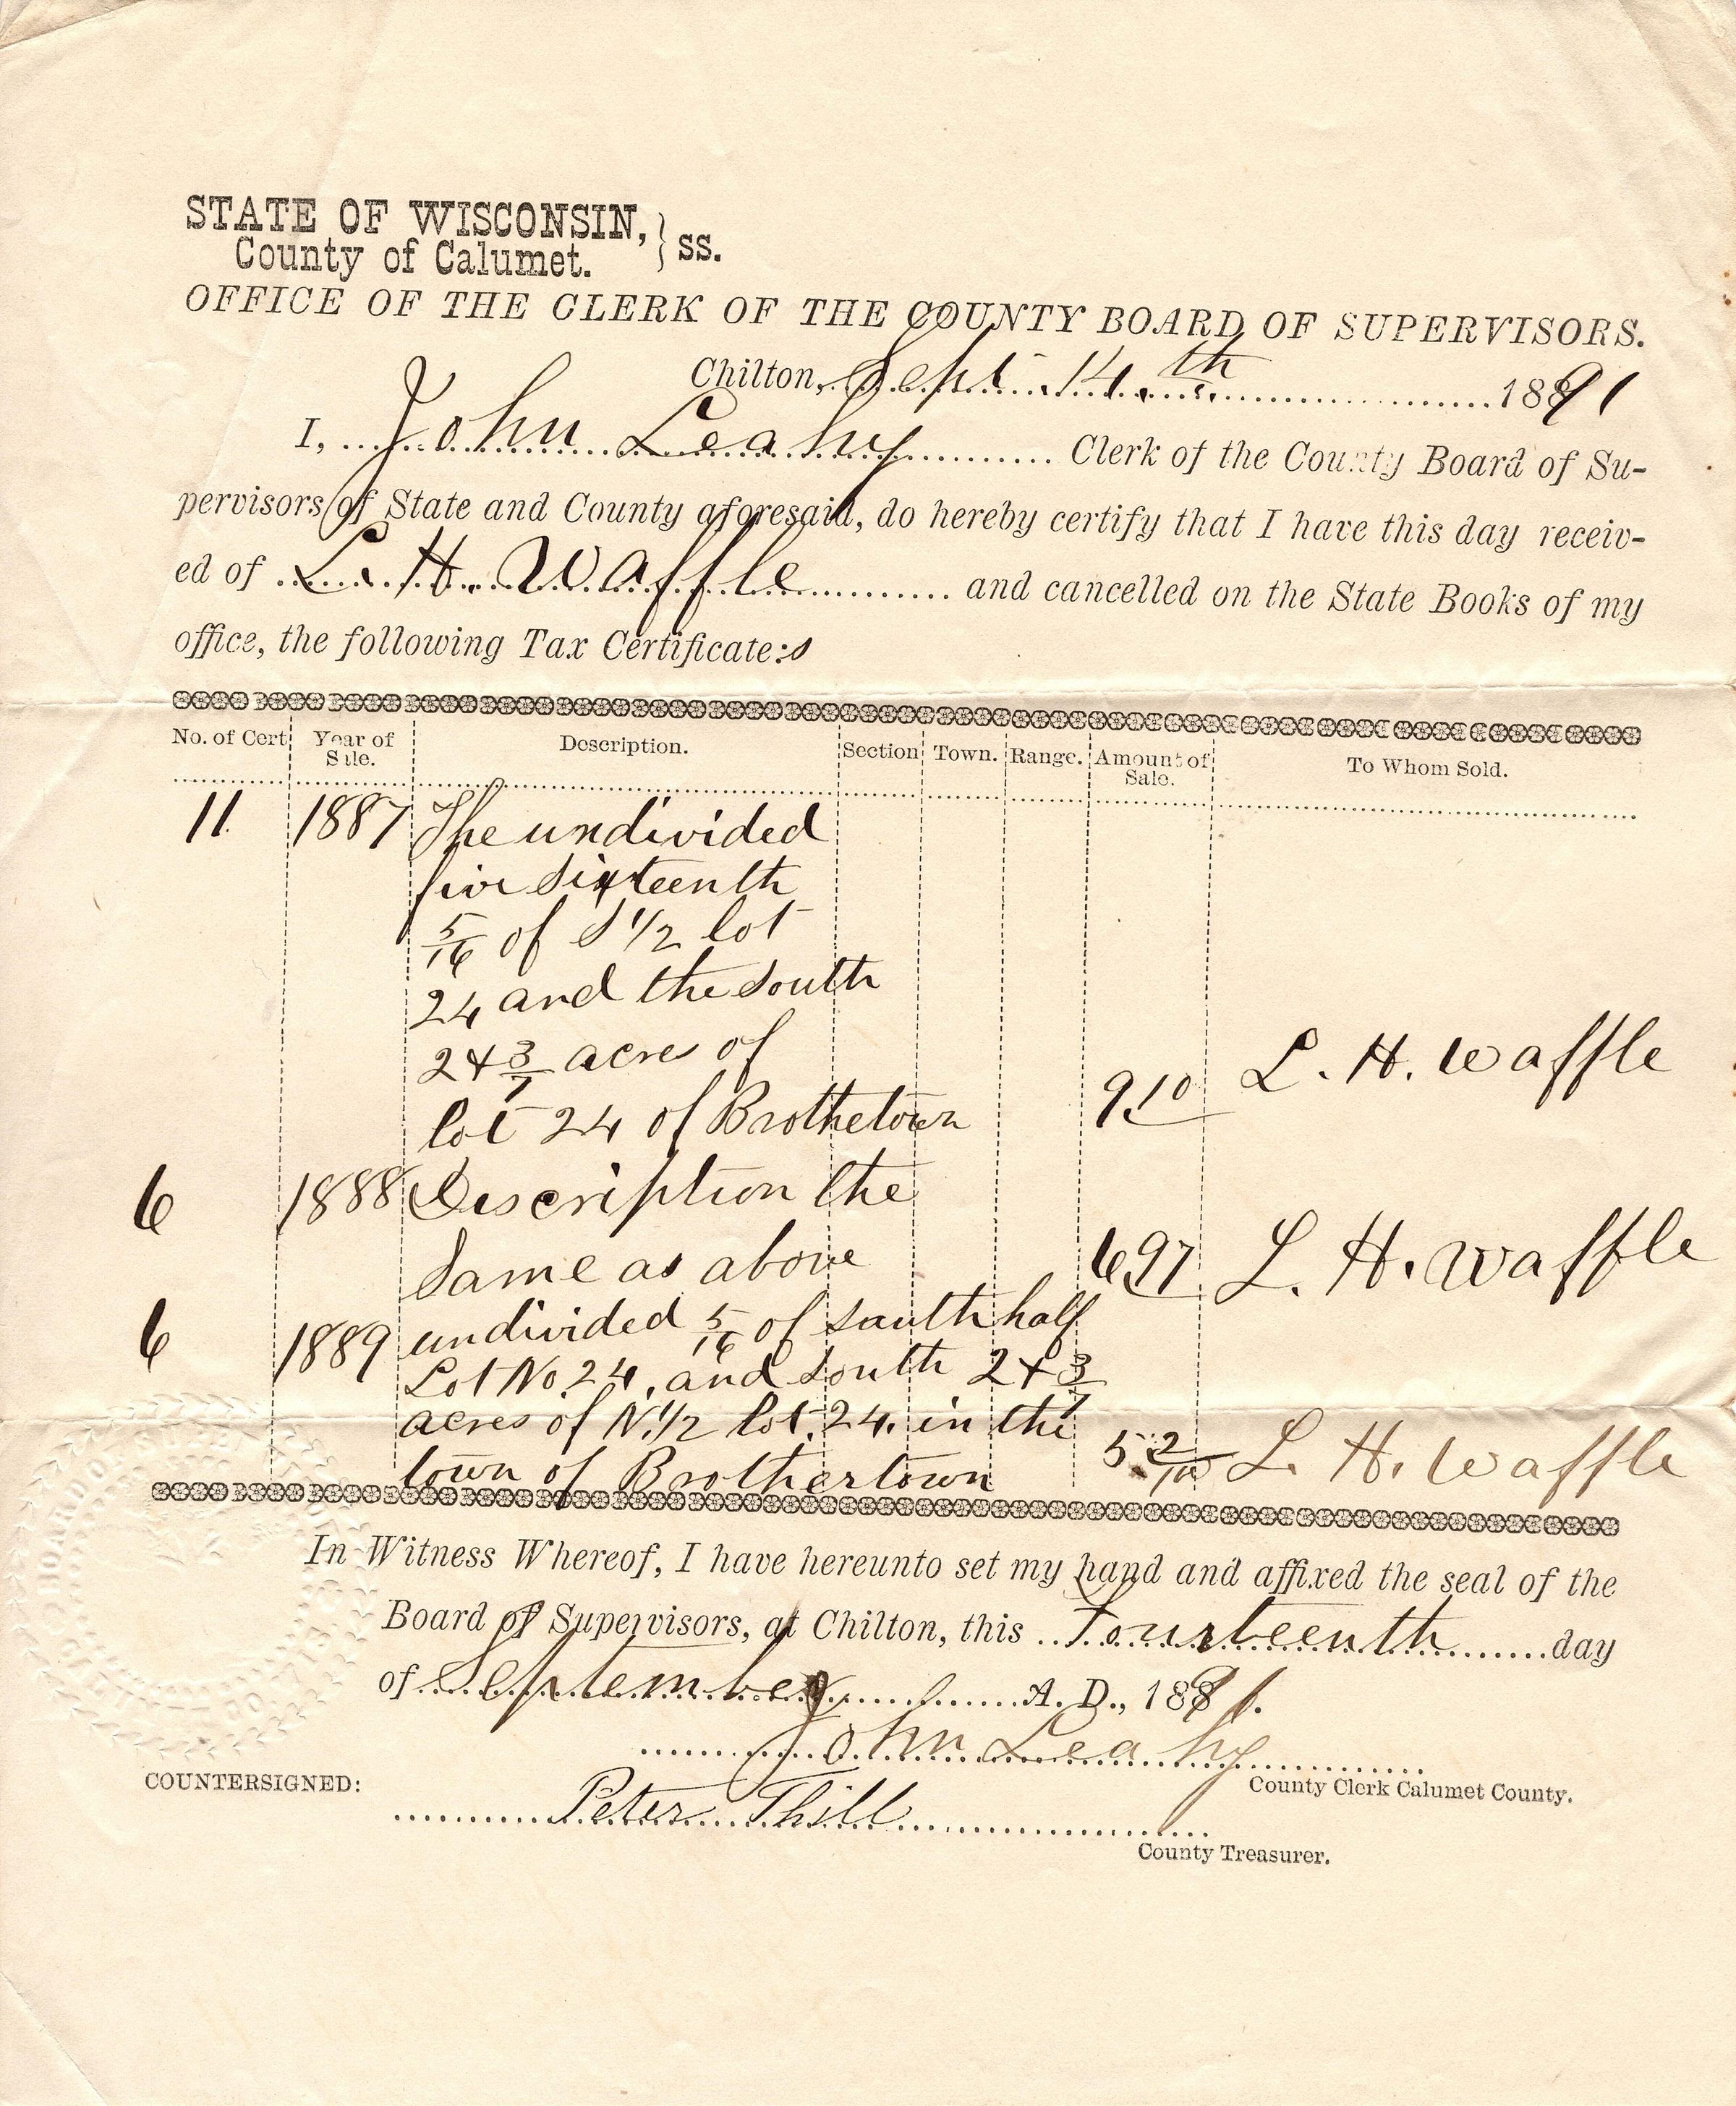 STATE OF WISCONSIN, } ss.
County of Calumet.
OFFICE OF THE CLERK OF THE COUNTY BOARD OF SUPERVISORS.
Chilton, Sept. 14th 1891
I, John Leahy Clerk of the County Board of Su-
pervisors of State and County aforesaid, do hereby certify that I have this day receiv-
ed of L. H. Waffle and cancelled on the State Books of my
office, the following Tax Certificate:s
No. of Cert. Year of Sale. Description. Section Town. Range. Amount of Sale. To Whom Sold.
11. 1887 The undivided
five sixteenth
5/16 of S 1/2 lot
24 and the south
2 & 3/7 acres of
lot 24 of Brothetown 9.10 L. H. Waffle
6 1888 Description the
Same as above 6 97 L. H. Waffle
6 1889 undivided 5/16 of south half
Lot No. 24, and south 2 & 3/7
acres of N. 1/2 lot. 24. in the
town of Brothertown L. H. Waffle
In Witness Whereof, I have hereunto set my hand and affixed the seal of the
Board of Supervisors, at Chilton, this Fourteenth day
of September A. D., 1891.
John Leahy
County Clerk Calumet County.
COUNTERSIGNED:
Peter Thill
County Treasurer.